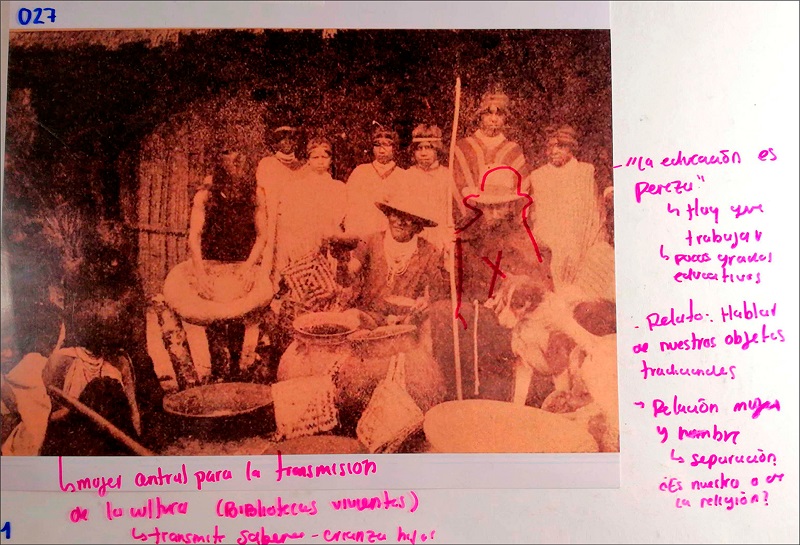 027
"La educación es
pereza"
↳ Hay que
trabajar
↳ pocos grados
educativos
- Relato: Hablar
de nuestros objetos
tradicionales
→ Relación mujer
y hombre
↳ separación
¿Es nuestro o de
la religión?
↳ mujer central para la transmisión
de la cultura (Bibliotecas vivientes)
↳ transmitir saberes - crianza hijos
1